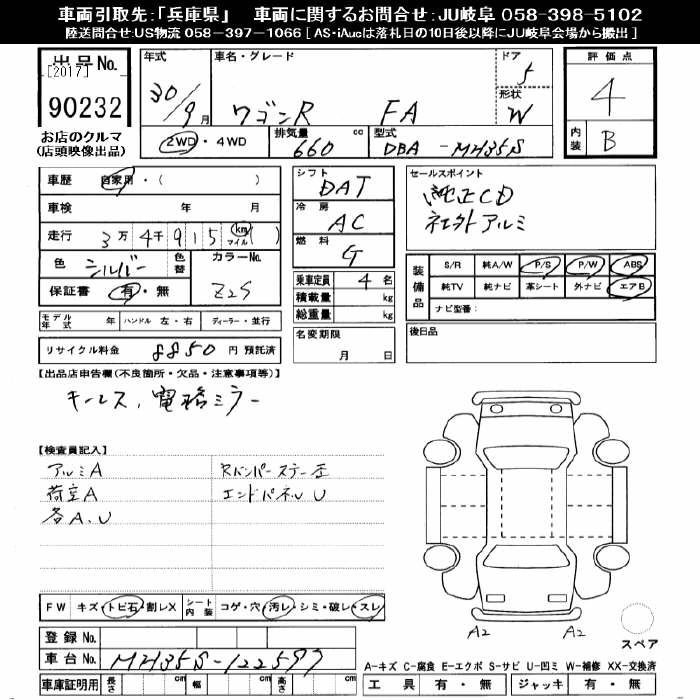 車両引取先:「兵庫県」 車両に関するお問合せ:JU岐阜 058-398-5102
陸送問合せ:US物流 058-397-1066 [ AS・iAucは落札日の10日後以降にJU岐阜会場から搬出 ]
出品No.
[2017]
90232
お店のクルマ
(店頭映像出品)
年式
30/9月
車名・グレード
ワゴンR FA
ドア
5
形状
W
2WD・4WD
排気量 cc
660
型式
DBA-MH35S
評価点
4
内装
B
車歴 自家用・( )
車検 年 月
走行 3万4千915 km マイル ( )
色 シルバー 色替 カラーNo.
Z2S
保証書 有・無
モデル年式 年 ハンドル 左・右 ディーラー・並行
リサイクル料金 8850 円 預託済
シフト
DAT
冷房
AC
燃料
G
乗車定員 4 名
積載量 kg
総重量 kg
名変期限
月 日
セールスポイント
純正CD
社外アルミ
装備品
S/R 純A/W P/S P/W ABS
純TV 純ナビ 革シート 外ナビ エアB
ナビ型番:
後日品
【出品店申告欄(不良箇所・欠品・注意事項等)】
キーレス、電格ミラー
【検査員記入】
アルミA
荷室A
各A、U
Rバンパーステー歪
エンドパネルU
FW キズ・トビ石・割レX シート内装 コゲ・穴・汚レ・シミ・破レ・スレ
登録No.
車台No. MH35S-122597
車庫証明用 長さ cm 幅 cm 高さ cm
A2 A2
スペア
A-キズ C-腐食 E-エクボ S-サビ U-凹ミ W-補修 XX-交換済
工具 有・無 ジャッキ 有・無